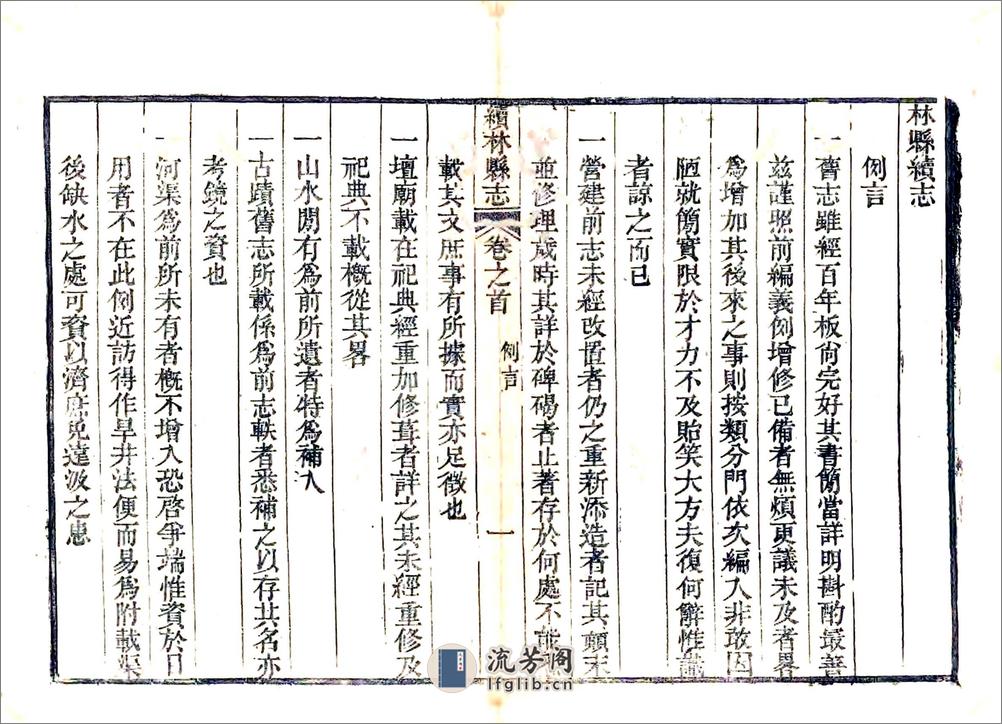 林縣續志
例言
一舊志雖經百年板尚完好其書簡當詳明斟酌最善
玆謹照前編義例增修已備者無煩更議未及者畧
爲增加其後來之事則按類分門依次編入非敢因
陋就簡實限於才力不及貽笑大方夫復何辭惟識
者諒之而已
一營建前志未經改置者仍之重新添造者記其顛末
並修理歲時其詳於碑碣者止著存於何處不
續林縣志
卷之首
例言
一
載其文庶事有所據而實亦足徵也
一壇廟載在祀典經重加修葺者詳之其未經重修及
祀典不載概從其畧
一山水閒有爲前所遺者特爲補入
一古蹟舊志所載係爲前志軼者悉補之以存其名亦
考鏡之資也
一河渠爲前所未有者概不增入恐啓爭端惟資於日
用者不在此例近訪得作旱井法便而易爲附載渠
後缺水之處可資以濟庶免遠汲之患
流芳阁
lfglib.cn